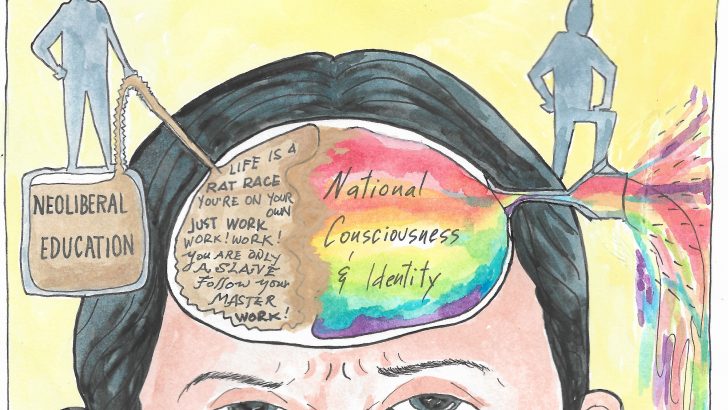 NEOLIBERAL
EDUCATION
LIFE IS A
RAT RACE
YOU'RE ON YOUR
OWN
JUST WORK
WORK! WORK!
YOU ARE ONLY
A SLAVE
FOLLOW YOUR
MASTER
WORK!
National
Consciousness
& Identity